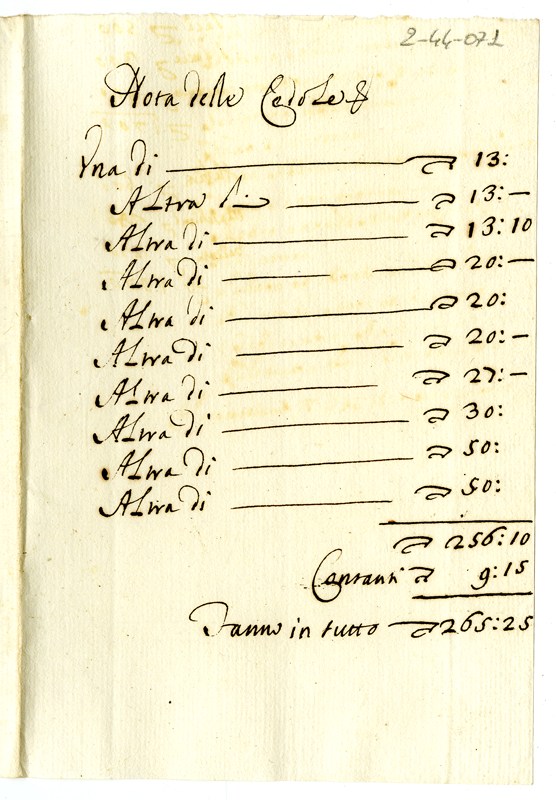 2-44-071
Nota delle Cedole
Una di 13:
Altra di 13:—
Altra di 13:10
Altra di 20:—
Altra di 20:
Altra di 20:—
Altra di 27:—
Altra di 30:
Altra di 50:
Altra di 50:
256:10
Contanti 9:15
Fanno in tutto 265:25